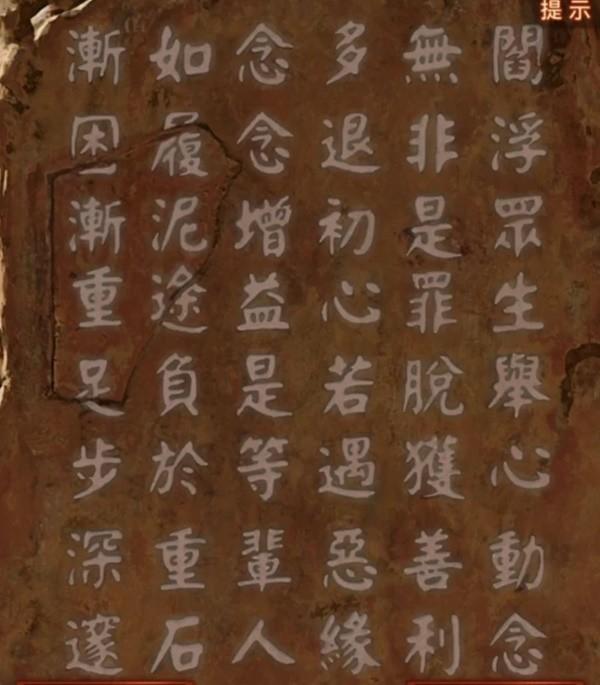 提示
閻浮眾生舉心動念
無非是罪脫獲善利
多退初心若遇惡緣
念念增益是等輩人
如履泥途負於重石
漸困漸重足步深邃